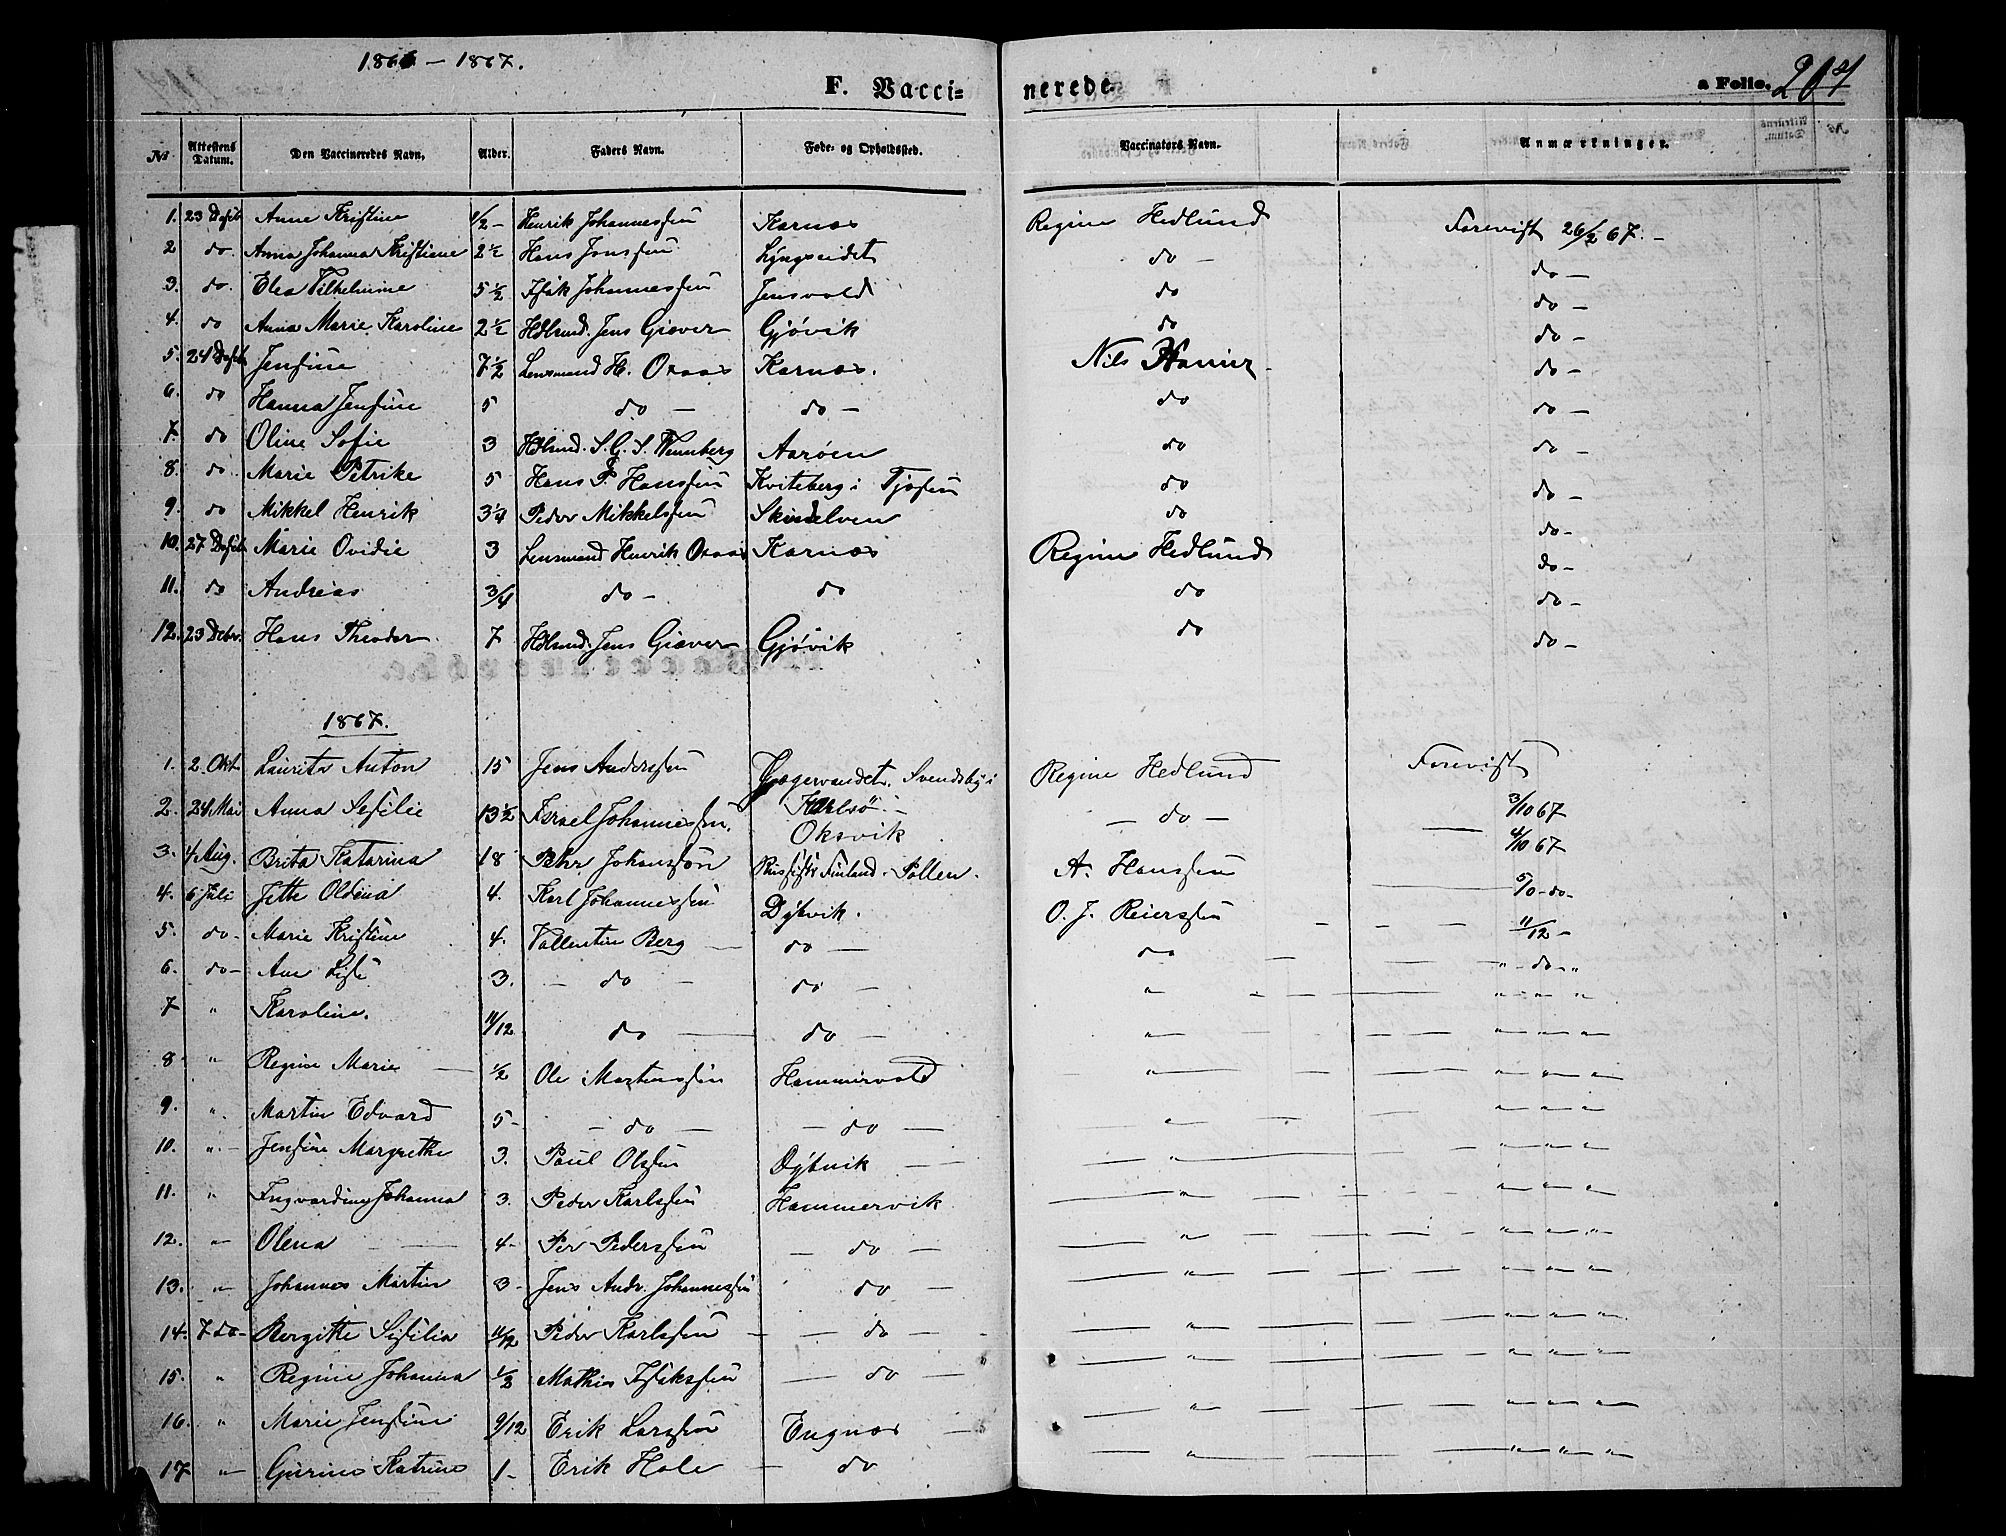 1866 – 1867.
F. Vacci- nerede. a Folio. 204
No Attestens Datum. Den Vaccineredes Navn. Alder. Faders Navn. Føde- og Opholdssted. Vaccinators Navn. Anmærkninger.
1. 23 Anne Kristine 1/2 – Henrik Johannessen Karnæs Regine Hedlund Forevist 26/2 67. –
2 do. Anna Johanna Kristiane 2 1/2 Hans Jenssen Lyngseidet do – do –
3. do. Elea Vilhelmine 5 1/2 Isak Johannessen Jensvold do do –
4. do Anna Marie Karoline 2 1/2 Hdlsmd. Jens Giæver Gjøvik do do –
5. 24 Jensine 7 1/2 Lensmand H. Oxaas Karnæs. Nils do –
6. do Hanna Jensine 5 do – do – do do –
7. do Oline Sofie 3 Hdlsmd. S. G. S. Wennberg Aarøen do do –
8. do. Marie Petrike 5 Hans P. Hanssen Kviteberg i do do –
9. do Mikkel Henrik 3/4 Peder Mikkelssen do do –
10. 27 Marie Ovidie 3 Lensmand Henrik Oxaas Karnæs Regine Hedlund do –
11. do Andreas 3/4 do – do do do –
12. 23 Decbr. Hans Theodor 7 Hdlsmd. Jens Giæver Gjøvik do do –
1867.
1. 2. Okt Laurits Anton 15 Jens Anderssen Jægervandet. Svendsby i Regine Hedlund Forevist
Karlsö. –
2. 24 Mai Anna Sefilie 13 1/2 Israel Johannessen. Oksvik – do – 3/10 67
3. 4 Aug. Brita Katarina 18 Pehr Johansson Finland. Pollen. A. Hanssen 4/10 67
4. 6 Juli Jette Oldina 4. Karl Johannessen Dybvik. O. J. Reierssen 5/10 – do –
5. do – Marie Kristine 4. Vallentin Berg – do – do 11/12 –
6. do – Ane 3. – do – do – " " – do – "
7 " Karoline. 11/12 do – do – " " " " "
8 " Regine Marie – 1/2 Ole Martenssen Hammervold " " " "
9. " Martin Edvard 5 – – do – – do – " " " "
10. " – Jensine Margrethe 3. Paul Olssen Dybvik – " " " "
11. " Ingvardine Johanna 3. Peder Karlssen Hammervik " " " "
12. " Olena – 4 – Per Pederssen – do – " " " "
13. " Johannes Martin 3 – Jens Andr. Johannessen do – " " " "
14. 7 do – Bergitte Sefilia 11/12 Peder Karlssen – – do – " " " "
15. " Regine Johanna 1/2 Mathis Isakssen – do – " " " "
16. " Marie Jensine 9/12 Erik Larssen Engnæs – " " " "
17 " Gurine Katrine 1 – Erik Hole – do " " " "